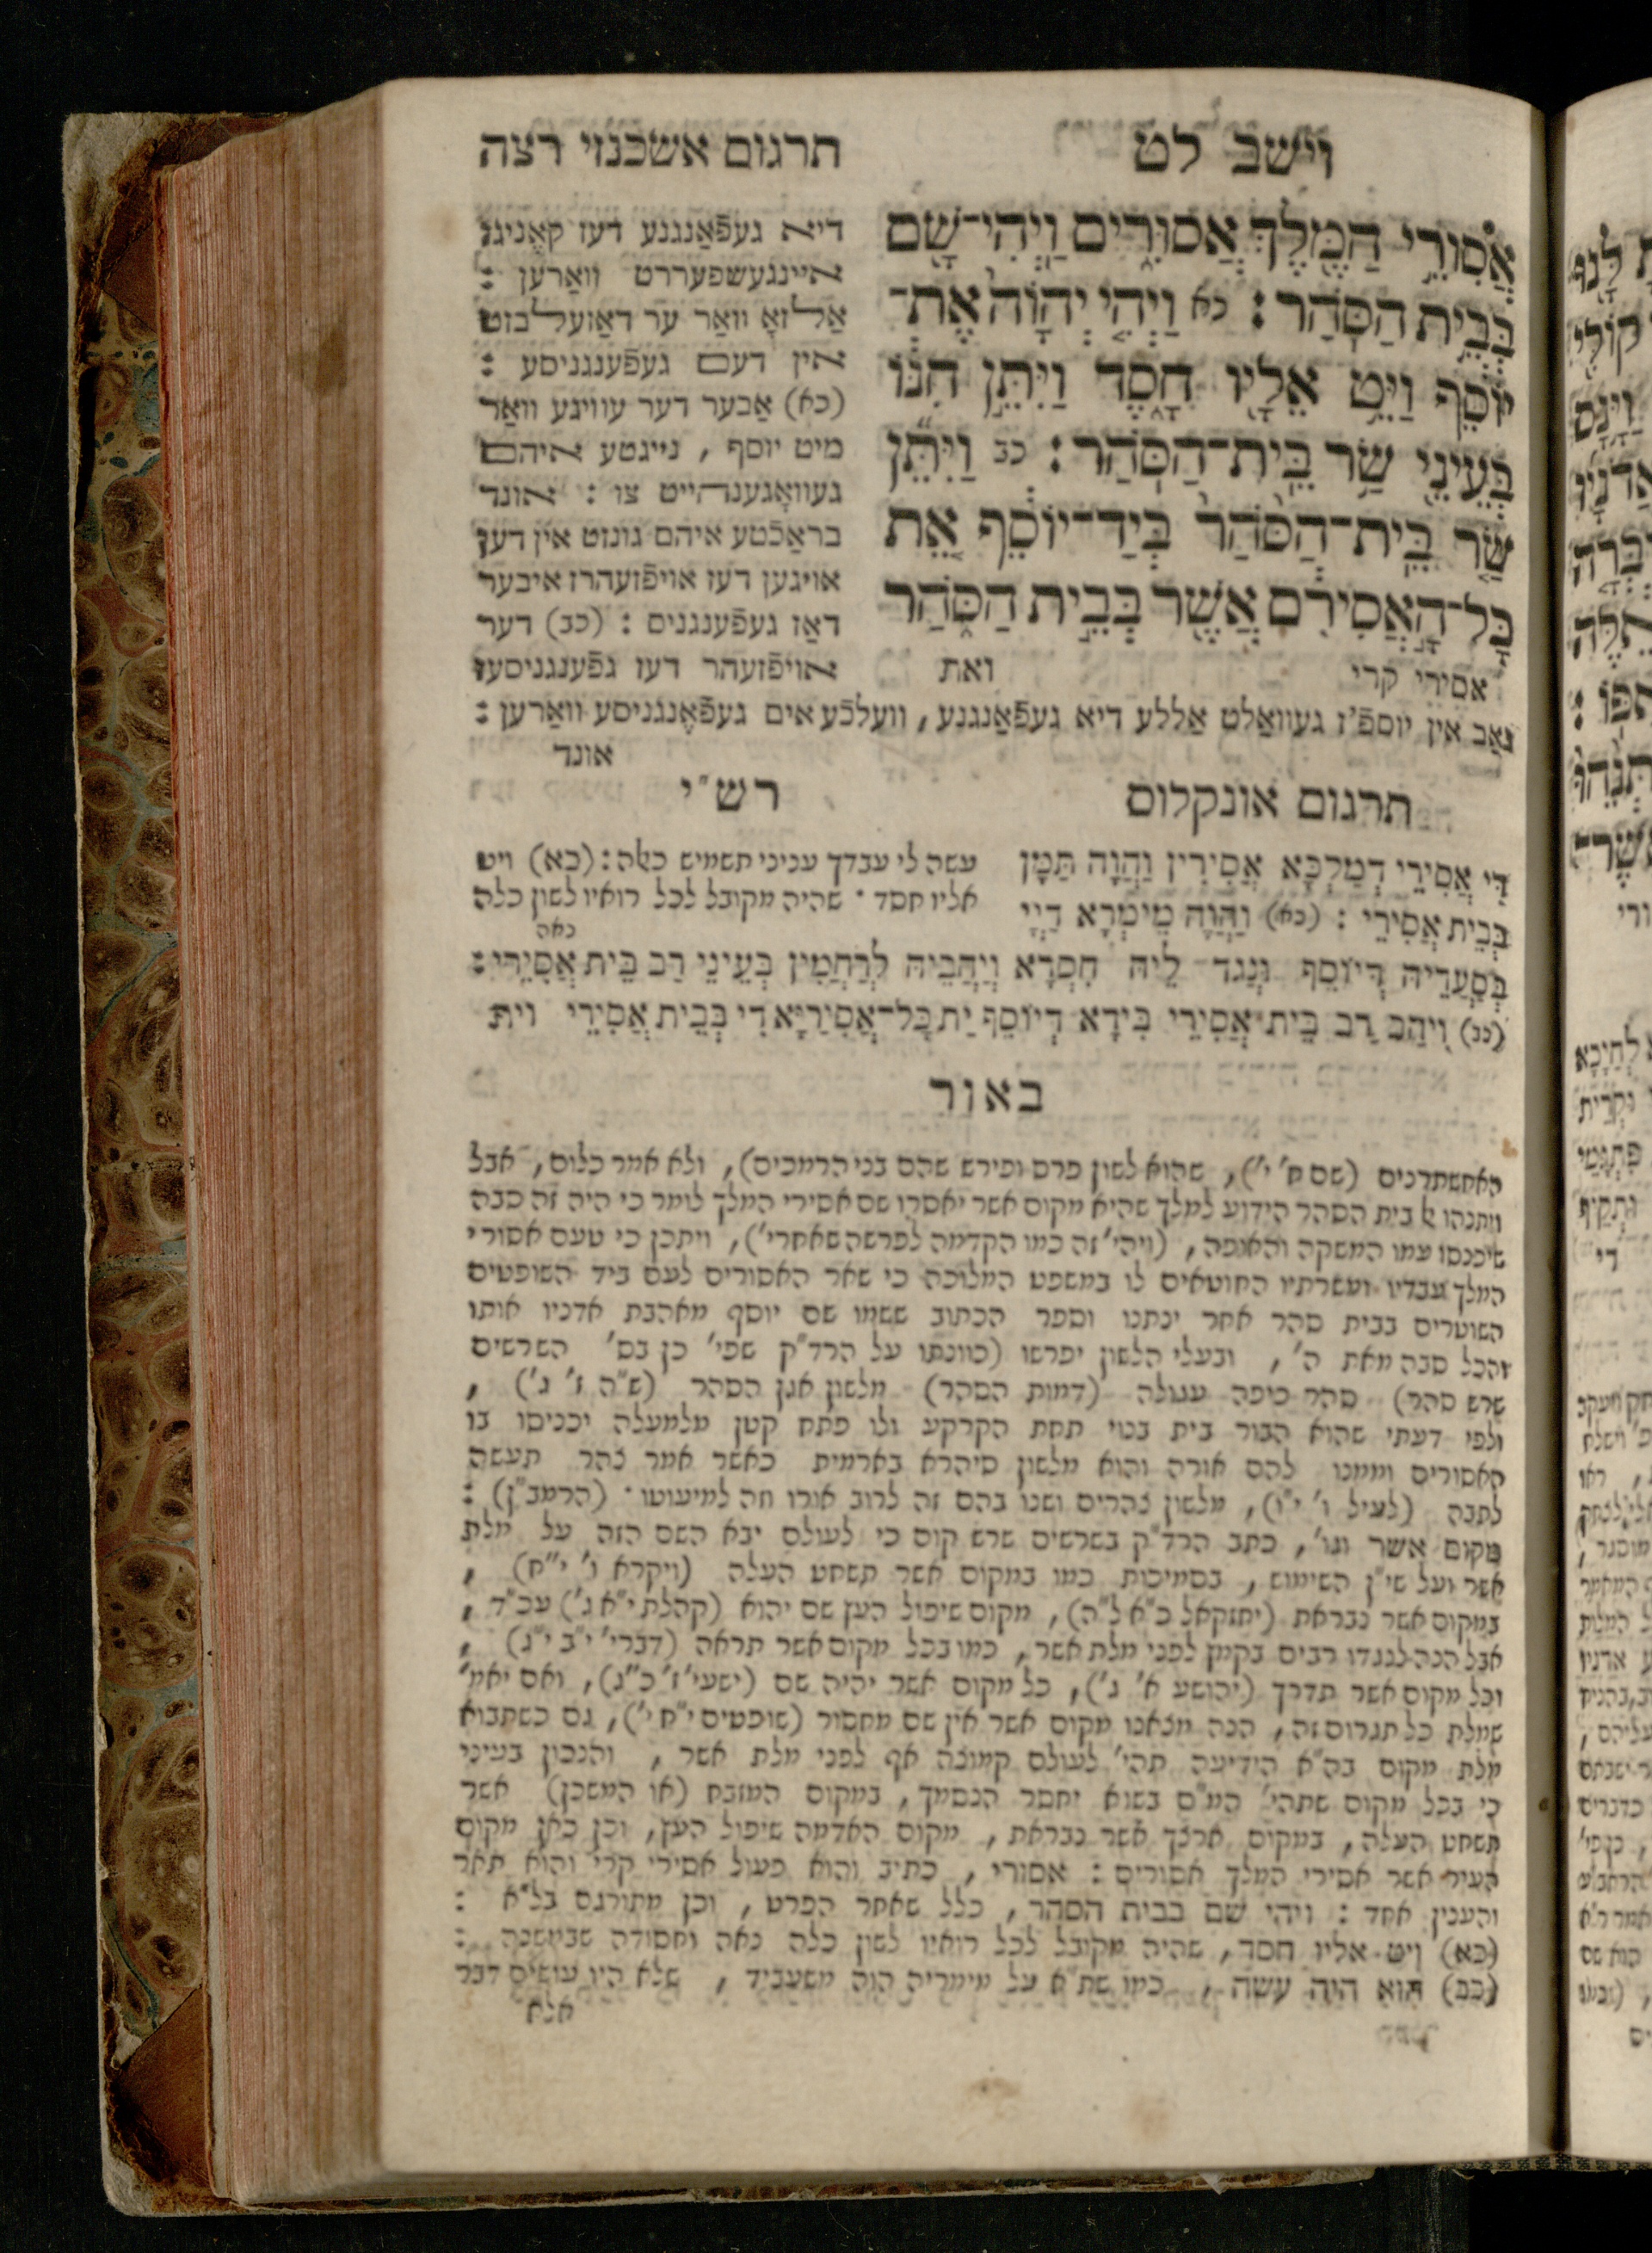 וישב לט
תרגום אשכנזי רצה
אֲסִורֵ֥י הַמֶּ֖לֶךְ אֲסוּרִ֑ים וַֽיְהִי־שָׁ֖ם
בְּבֵ֥ית הַסֹּֽהַר׃ כא וַיְהִ֤י יְהוָֹה֙ אֶת־
יוֹסֵ֔ף וַיֵּ֥ט אֵלָ֖יו חָ֑סֶד וַיִּתֵּ֣ן חִנּ֔וֹ
בְּעֵינֵ֖י שַׂ֥ר בֵּֽית־הַסֹּֽהַר׃ כב וַיִּתֵּ֞ן
שַׂ֤ר בֵּֽית־הַסֹּ֨הַר֙ בְּיַד־יוֹסֵ֔ף אֵ֚ת
כָּל־הָ֣אֲסִירִ֔ם אֲשֶׁ֖ר בְּבֵ֣ית הַסֹּ֑הַר
אסירי קרי ואת
דיא געפֿאַנגנע דעז קאֶניגז
איינגעשפעררט וואַרען :
אַלזאָ וואַר ער דאַזעלבזט
אין דעם געפֿענגניסע :
(כא) אַבער דער עוויגע וואַר
מיט יוסף , נייגטע איהם
געוואָגענהייט צו : אונד
בראַכֿטע איהם גונזט אין דען
אויגען דעז אויפֿזעהרז איבער
דאַז געפֿענגנים : (כב) דער
אויפֿזעהר דעז גפֿענגניסעז
גאַב אין יוספֿ'ז געוואַלט אַללע דיא געפֿאַנגנע , וועלכֿע אים געפֿאֶנגניסע וואַרען :
אונד
תרגום אונקלוס
דִּי אֲסִירֵי דְמַלְכָּא אֲסִירִין וַהֲוָה תַּמָּן
בְּבֵית אֲסִירֵי : (כא) וַהֲוָה מֵימְרָא דַיְיָ
בְּסַעֲדֵיהּ דְּיוֹסֵף וּנְגַד לֵיהּ חִסְדָּא וִיהֲבֵיהּ לְרַחֲמִין בְּעֵינֵי רַב בֵּית אֲסִירֵי :
(כב) וִיהַב רַב בֵּית אֲסִירֵי בִּידָא דְיוֹסֵף יַת כָּל־אֲסִירַיָּא דִי בְּבֵית אֲסִירֵי וית
רש"י
עשה לי עבדך עניני תשמיש כאלה : (כא) ויט
אליו חסד · שהיה מקובל לכל רואיו לשון כלה
נאה
באור
האחשתרנים (שם ח' י'), שהוא לשון פרס ופירש שהם בני הרמכים), ולא אמר כלום, אבל
ויתנהו אל בית הסהר הידוע למלך שהיא מקום אשר יאסרו שם אסירי המלך לומר כי היה זה סבה
שיכנסו עמו המשקה והאופה, (ויהי' זה כמו הקדמה לפרשה שאחרי'), ויתכן כי טעם אסורי
המלך עבדיו ומשרתיו החוטאים לו במשפט המלוכה כי שאר האסורים לעם ביד השופטים
השוטרים בבית סהר אחר ינתנו וספר הכתוב ששמו שם יוסף מאהבת אדניו אותו
והכל סבה מאת ה', ובעלי הלשון יפרשו (כוונתו על הרד"ק שפי' כן בס' השרשים
שרש סהר) סהר כיפה עגולה (דמות הסהר) מלשון אגן הסהר (ש"ה ז' ג') ,
ולפי דעתי שהוא הבור בית בנוי תחת הקרקע ולו פתח קטן מלמעלה יכניסו בו
האסורים וממנו להם אורה והוא מלשון סיהרא בארמית כאשר אמר צהר תעשה
לתבה (לעיל ו' י"ו), מלשון צהרים ושנו בהם זה לרוב אורו וזה למיעוטו · (הרמב"ן) :
מקום אשר וגו', כתב הרד"ק בשרשים שרש קום כי לעולם יבא השם הזה על מלת
אשר ועל שי"ן השימוש, בסמיכות כמו במקום אשר תשחט העלה (ויקרא ו' י"ח) ,
במקום אשר נבראת (יחזקאל כ"א ל"ה), מקום שיפול העץ שם יהוא (קהלת י"א ג') עכ"ד ,
אבל הנה לנגדו רבים בקמץ לפני מלת אשר, כמו בכל מקום אשר תראה (דברי' י"ב י"ג) ,
וכל מקום אשר תדרך (יהושע א' ג'), כל מקום אשר יהיה שם (ישעי' ז' כ"ג), ואם יאמ'
שמלת כל תגרום זה, הנה מצאנו מקום אשר אין שם מחסור (שופטים י"ח י'), גם כשתבוא
מלת מקום בה"א הידיעה תהי' לעולם קמוצה אף לפני מלת אשר , והנכון בעיני
כי בכל מקום שתהי' המ"ם בשוא יחסר הנסמך, במקום המזבח (או המשכן) אשר
תשחט העלה, במקום ארצך אשר נבראת, מקום האדמה שיפול העץ, וכן כאן מקום
העיר אשר אסירי המלך אסורים : אסורי, כתיב והוא פעול אסירי קרי והוא תאר
והענין אחד : ויהי שם בבית הסהר, כלל שאחר הפרט, וכן מתורגם בל"א :
(כא) ויט אליו חסד, שהיה מקובל לכל רואיו לשון כלה נאה וחסודה שבמשנה :
(כב) הוא היה עשה, כמו שת"א על מימריה הוה מתעביד , שלא היו עושים דבר
אלא